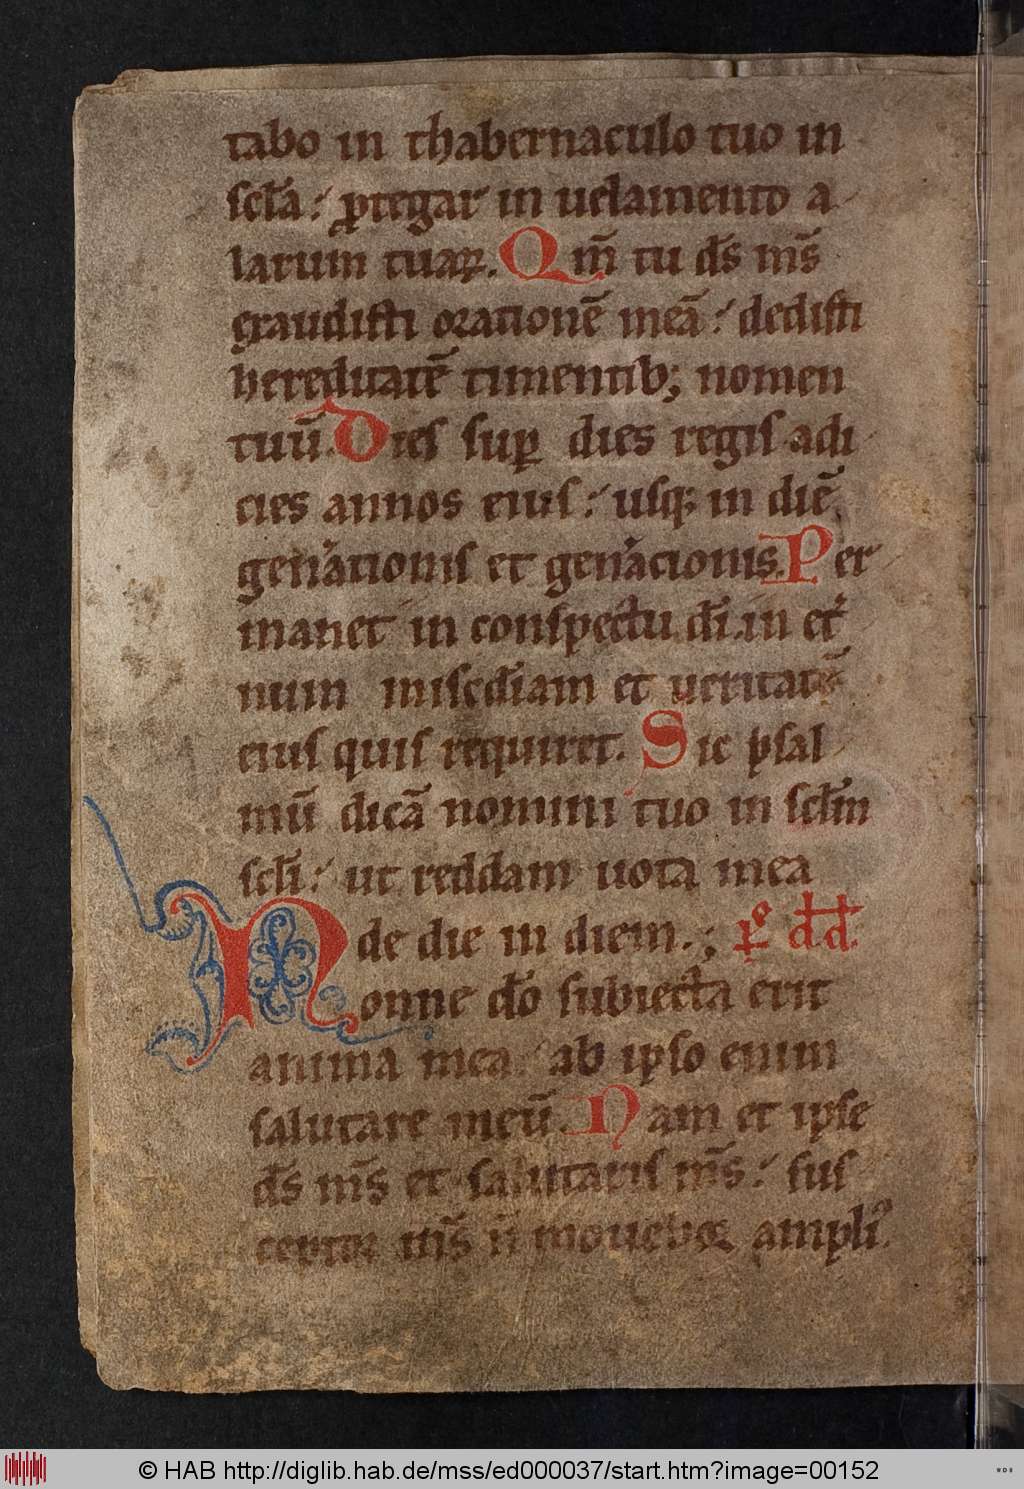 tabo in thabernaculo tuo in
scl̄a : ꝓtegar in uelamento a
larum tuaꝝ. Qm̄ tu ds̄ ms̄
exaudisti orationē meā : dedisti
hereditatē timentib; nomen
tuū. Dies suꝑ dies regis adi
cies annos eius : usq; in diē
gen̄ationis et gen̄acionis. Per
manet in conspectu dī in et̾
num misc̄diam et ueritatē
eius quis requiret. Sic psal
mū dicā nomini tuo in scl̄m
scl̄i : ut reddam uota mea
de die in diem. ; dd.
Nonne dō subiecta erit
anima mea : ab ipso enim
salutare meū. Nam et ipse
ds̄ ms̄ et salutaris ms̄ : sus
ceptor ms̄ n̄ moueboꝛ ampliꝰ.
© HAB http://diglib.hab.de/mss/ed000037/start.htm?image=00152